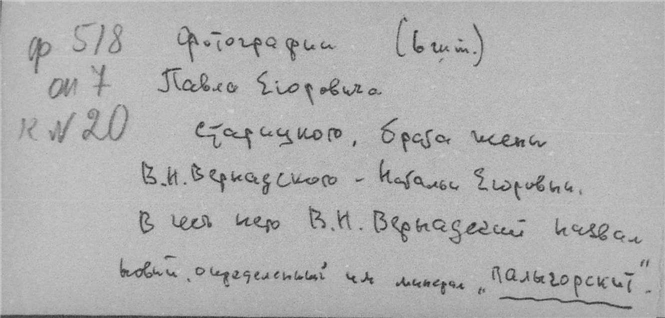 ф 518 Фотографии (6 шт.)
оп 7 Павла Егоровича
к N 20 Старицкого, брата жены
В.И. Вернадского – Натальи Егоровны.
В честь него В.И. Вернадский назвал
новый, определенный им минерал „Палыгорскит".